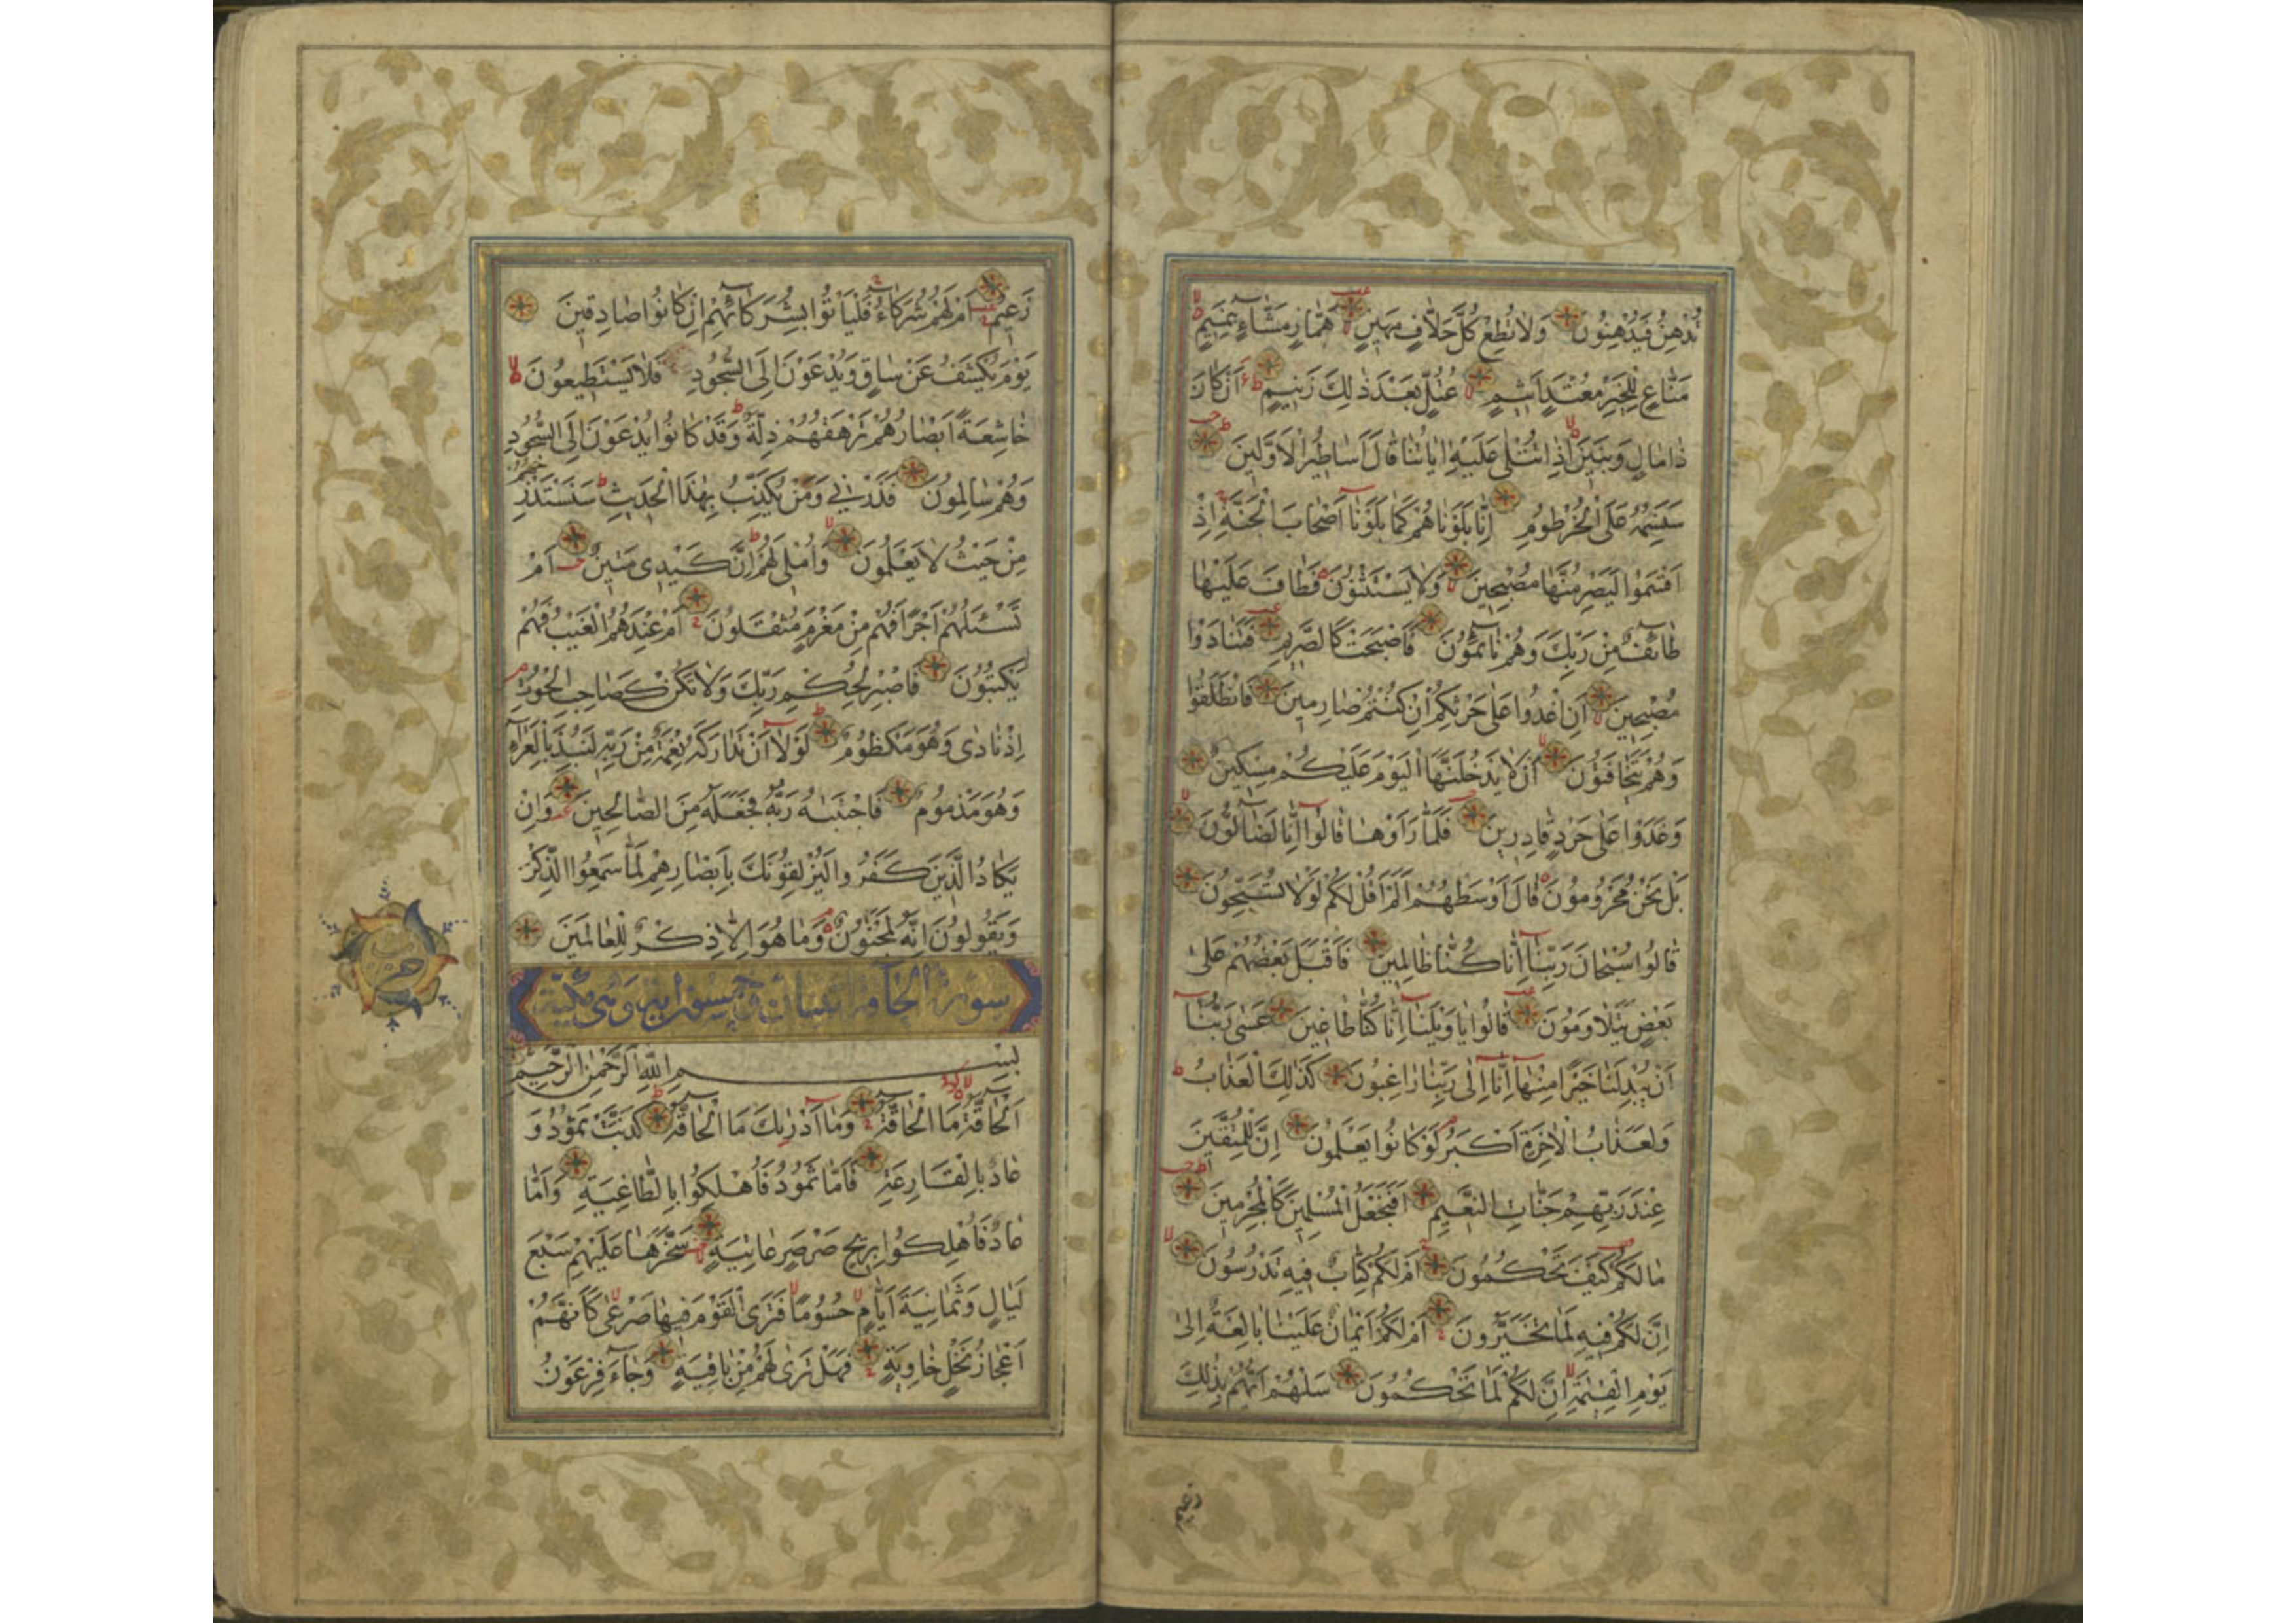 تُدْهِنُ فَيُدْهِنُونَ وَلَا تُطِعْ كُلَّ حَلَّافٍ مَهِينٍ هَمَّازٍ مَشَّاءٍ بِنَمِيمٍ
مَنَّاعٍ لِلْخَيْرِ مُعْتَدٍ أَثِيمٍ عُتُلٍّ بَعْدَ ذٰلِكَ زَنِيمٍ أَنْ كَانَ
ذَا مَالٍ وَبَنِينَ إِذَا تُتْلَىٰ عَلَيْهِ اٰيَاتُنَا قَالَ أَسَاطِيرُ الْأَوَّلِينَ
سَنَسِمُهُ عَلَى الْخُرْطُومِ إِنَّا بَلَوْنَاهُمْ كَمَا بَلَوْنَا أَصْحَابَ الْجَنَّةِ إِذْ
أَقْسَمُوا لَيَصْرِمُنَّهَا مُصْبِحِينَ وَلَا يَسْتَثْنُونَ فَطَافَ عَلَيْهَا
طَائِفٌ مِنْ رَبِّكَ وَهُمْ نَائِمُونَ فَأَصْبَحَتْ كَالصَّرِيمِ فَتَنَادَوْا
مُصْبِحِينَ أَنِ اغْدُوا عَلَىٰ حَرْثِكُمْ إِنْ كُنْتُمْ صَارِمِينَ فَانْطَلَقُوا
وَهُمْ يَتَخَافَتُونَ أَنْ لَا يَدْخُلَنَّهَا الْيَوْمَ عَلَيْكُمْ مِسْكِينٌ
وَغَدَوْا عَلَىٰ حَرْدٍ قَادِرِينَ فَلَمَّا رَأَوْهَا قَالُوا إِنَّا لَضَالُّونَ
بَلْ نَحْنُ مَحْرُومُونَ قَالَ أَوْسَطُهُمْ أَلَمْ أَقُلْ لَكُمْ لَوْلَا تُسَبِّحُونَ
قَالُوا سُبْحَانَ رَبِّنَا إِنَّا كُنَّا ظَالِمِينَ فَأَقْبَلَ بَعْضُهُمْ عَلَىٰ
بَعْضٍ يَتَلَاوَمُونَ قَالُوا يَا وَيْلَنَا إِنَّا كُنَّا طَاغِينَ عَسَىٰ رَبُّنَا
أَنْ يُبْدِلَنَا خَيْرًا مِنْهَا إِنَّا إِلَىٰ رَبِّنَا رَاغِبُونَ كَذٰلِكَ الْعَذَابُ
وَلَعَذَابُ الْاٰخِرَةِ أَكْبَرُ لَوْ كَانُوا يَعْلَمُونَ إِنَّ لِلْمُتَّقِينَ
عِنْدَ رَبِّهِمْ جَنَّاتِ النَّعِيمِ أَفَنَجْعَلُ الْمُسْلِمِينَ كَالْمُجْرِمِينَ
مَا لَكُمْ كَيْفَ تَحْكُمُونَ أَمْ لَكُمْ كِتَابٌ فِيهِ تَدْرُسُونَ
إِنَّ لَكُمْ فِيهِ لَمَا تَخَيَّرُونَ أَمْ لَكُمْ أَيْمَانٌ عَلَيْنَا بَالِغَةٌ إِلَىٰ
يَوْمِ الْقِيٰمَةِ إِنَّ لَكُمْ لَمَا تَحْكُمُونَ سَلْهُمْ أَيُّهُمْ بِذٰلِكَ
زعيم
زَعِيمٌ أَمْ لَهُمْ شُرَكَاءُ فَلْيَأْتُوا بِشُرَكَائِهِمْ إِنْ كَانُوا صَادِقِينَ
يَوْمَ يُكْشَفُ عَنْ سَاقٍ وَيُدْعَوْنَ إِلَى السُّجُودِ فَلَا يَسْتَطِيعُونَ
خَاشِعَةً أَبْصَارُهُمْ تَرْهَقُهُمْ ذِلَّةٌ وَقَدْ كَانُوا يُدْعَوْنَ إِلَى السُّجُودِ
وَهُمْ سَالِمُونَ فَذَرْنِي وَمَنْ يُكَذِّبُ بِهٰذَا الْحَدِيثِ سَنَسْتَدْرِجُهُمْ
مِنْ حَيْثُ لَا يَعْلَمُونَ وَأُمْلِي لَهُمْ إِنَّ كَيْدِي مَتِينٌ أَمْ
تَسْئَلُهُمْ أَجْرًا فَهُمْ مِنْ مَغْرَمٍ مُثْقَلُونَ أَمْ عِنْدَهُمُ الْغَيْبُ فَهُمْ
يَكْتُبُونَ فَاصْبِرْ لِحُكْمِ رَبِّكَ وَلَا تَكُنْ كَصَاحِبِ الْحُوتِ
إِذْ نَادَىٰ وَهُوَ مَكْظُومٌ لَوْلَا أَنْ تَدَارَكَهُ نِعْمَةٌ مِنْ رَبِّهِ لَنُبِذَ بِالْعَرَاءِ
وَهُوَ مَذْمُومٌ فَاجْتَبٰهُ رَبُّهُ فَجَعَلَهُ مِنَ الصَّالِحِينَ وَإِنْ
يَكَادُ الَّذِينَ كَفَرُوا لَيُزْلِقُونَكَ بِأَبْصَارِهِمْ لَمَّا سَمِعُوا الذِّكْرَ
وَيَقُولُونَ إِنَّهُ لَمَجْنُونٌ وَمَا هُوَ إِلَّا ذِكْرٌ لِلْعَالَمِينَ
حزب
سورة الحاقة وهي مكية
بِسْمِ اللهِ الرَّحْمٰنِ الرَّحِيمِ
اَلْحَاقَّةُ مَا الْحَاقَّةُ وَمَا أَدْرٰيكَ مَا الْحَاقَّةُ كَذَّبَتْ ثَمُودُ وَ
عَادٌ بِالْقَارِعَةِ فَأَمَّا ثَمُودُ فَأُهْلِكُوا بِالطَّاغِيَةِ وَأَمَّا
عَادٌ فَأُهْلِكُوا بِرِيحٍ صَرْصَرٍ عَاتِيَةٍ سَخَّرَهَا عَلَيْهِمْ سَبْعَ
لَيَالٍ وَثَمَانِيَةَ أَيَّامٍ حُسُومًا فَتَرَى الْقَوْمَ فِيهَا صَرْعَىٰ كَأَنَّهُمْ
أَعْجَازُ نَخْلٍ خَاوِيَةٍ فَهَلْ تَرَىٰ لَهُمْ مِنْ بَاقِيَةٍ وَجَاءَ فِرْعَوْنُ